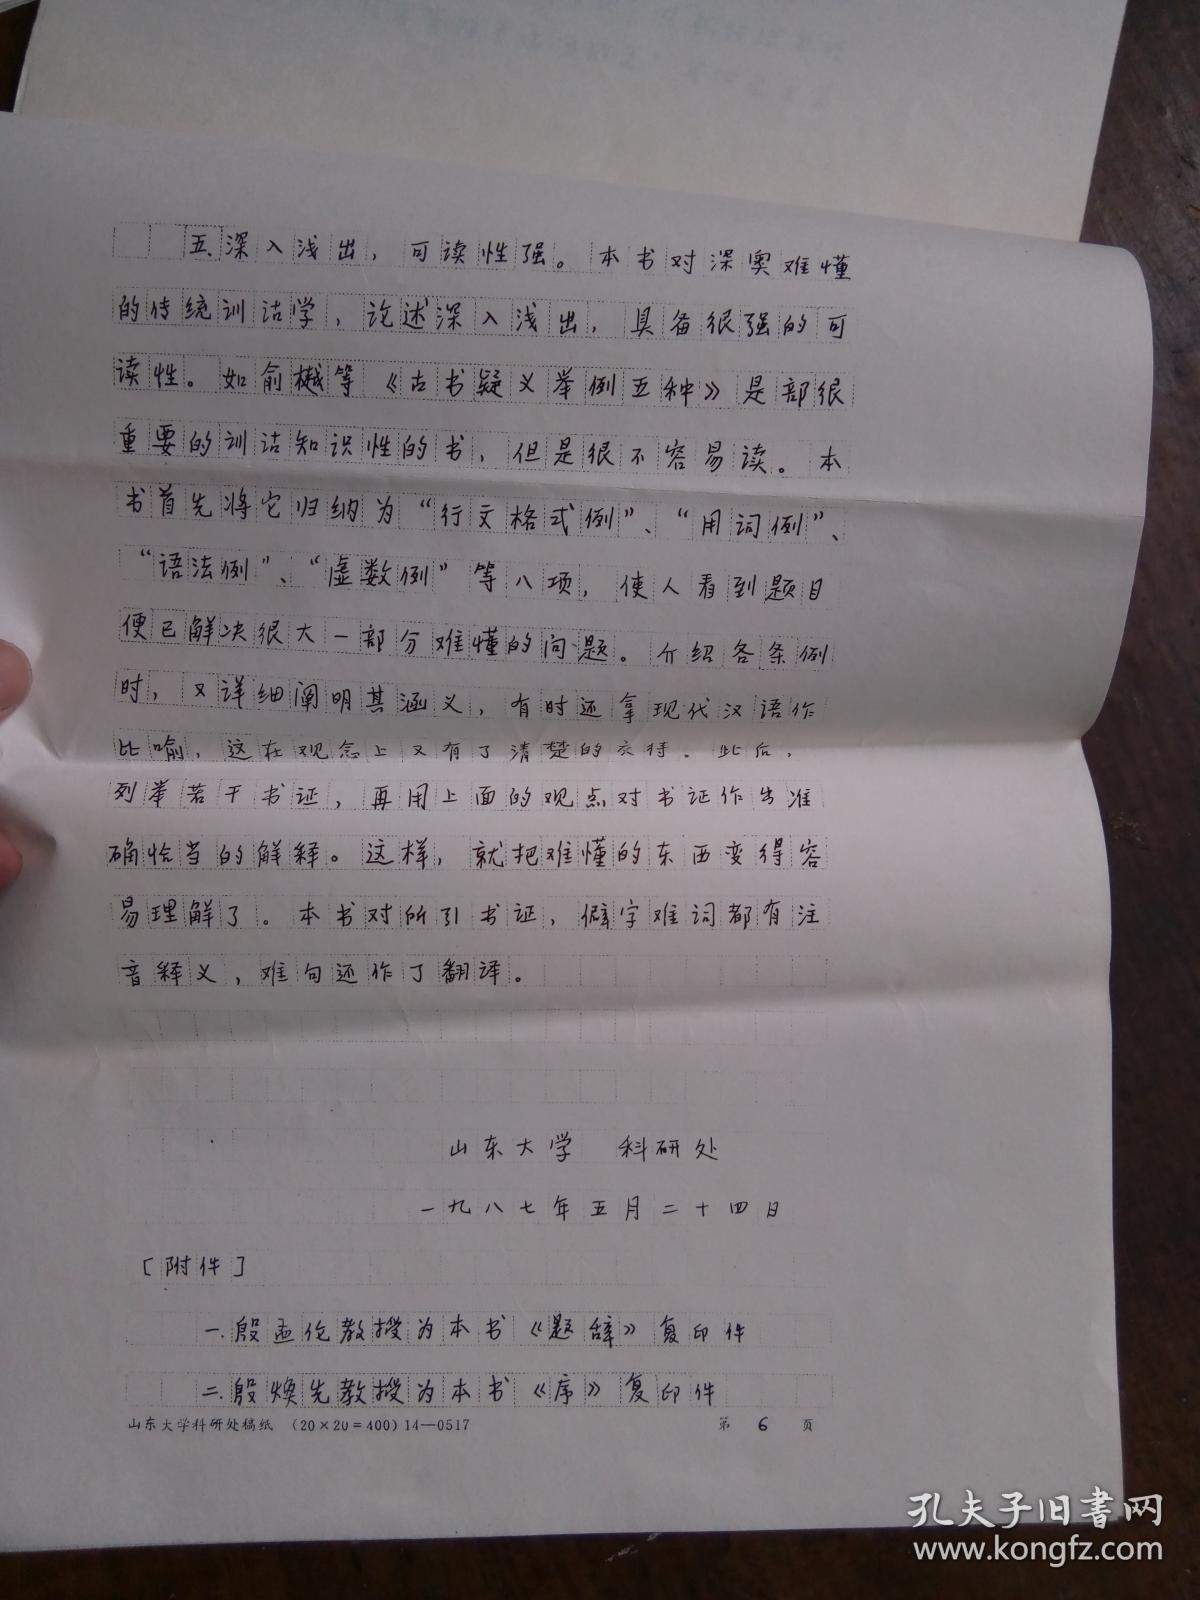 五、深入浅出，可读性强。本书对深奥难懂
的传统训诂学，论述深入浅出，具备很强的可
读性。如俞樾等《古书疑义举例五种》是部很
重要的训诂知识性的书，但是很不容易读。本
书首先将它归纳为“行文格式例”、“用词例”、
“语法例”、“虚数例”等八项，使人看到题目
便已解决很大一部分难懂的问题。介绍各条例
时，又详细阐明其涵义，有时还拿现代汉语作
比喻，这在观念上又有了清楚的交待。此后，
列举若干书证，再用上面的观点对书证作出准
确恰当的解释。这样，就把难懂的东西变得容
易理解了。本书对所引书证，僻字难词都有注
音释义，难句还作了翻译。
山东大学 科研处
一九八七年五月二十四日
［附件］
一.殷孟伦教授为本书《题辞》复印件
二.殷焕先教授为本书《序》复印件
山东大学科研处稿纸 (20×20=400) 14—0517 第 6 页
孔夫子旧书网
www.kongfz.com